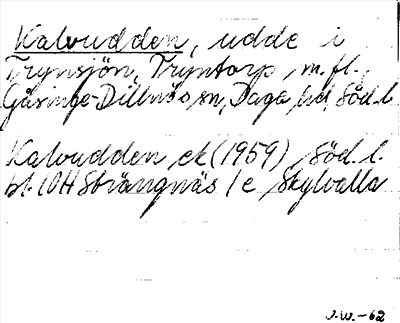 Kalvudden, udde i
Trynsjön, Tryntorp, m.fl.,
Gåsinge-Dillnäs sn, Daga hd, Söd.l.
Kalvudden ek (1959) Söd.l.
bl. 10H Strängnäs 1e Skylvalla
J.W.-62